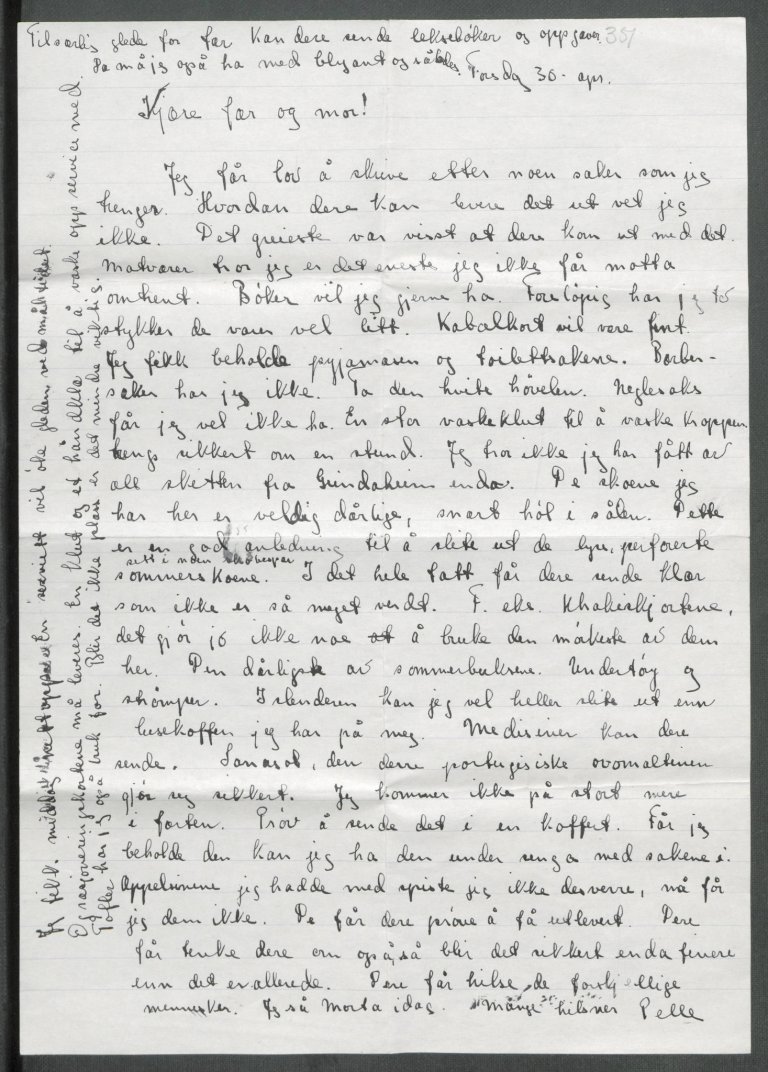 Til særlig glede for far kan dere sende leksebøker og oppgaver. 351
Da må jeg også ha med blyant og således.
Torsdag 30. apr.
Kjære far og mor!
Jeg får lov å skrive etter noen saker som jeg
trenger. Hvordan dere kan levere det ut vet jeg
ikke. Det greieste var visst at dere kom ut med det.
Matvarer tror jeg er det eneste jeg ikke får motta
omtrent. Bøker vil jeg gjerne ha. Foreløpig har jeg to
stykker de varer vel litt. Kabalkort vil være fint.
Jeg fikk beholde pyjamasen og toilettsakene. Barber-
saker har jeg ikke. Ta den hvite høvelen. Neglesaks
får jeg vel ikke ha. En stor vaskeklut til å vaske kroppen
trengs sikkert om en stund. Jeg tror ikke jeg har fått av
all skitten fra Grindaheim enda. De skoene jeg
har her er veldig dårlige, snart hól i sålen. Dette
er en god anledning til å slite ut de lyse, perforerte
sett i noen skobesparere
sommerskoene. I det hele tatt får dere sende klær
som ikke er så meget verdt. F. eks. Khakiskjortene,
det gjør jo ikke noe at å bruke den mørkeste av dem
her. Den dårligste av sommerbuksene. Undertøy og
strømper. Islenderen kan jeg vel heller slite ut enn
lusekoften jeg har på meg. Medisiner kan dere
sende. Sanasol, den derre portugisiske ovomaltinen
gjør seg sikkert. Jeg kommer ikke på stort mere
i farten. Prøv å sende det i en koffert. Får jeg
beholde den kan jeg ha den under senga med sakene i.
Appelsinene jeg hadde med spiste jeg ikke desverre, nå får
jeg dem ikke. De får dere prøve å få utlevert. Dere
får tenke dere om også, så blir det sikkert enda finere
enn det er allerede. Dere får hilse de forskjellige
mennesker. Jeg så Morta idag. Mange hilsner Pelle
Jeg fikk middag En serviett vil øke gleden ved måltidet.
Og rasjoneringskortene må leveres. En klut og et håndkle til å vaske opp service med
Tøfler har jeg også bruk for. Blir det ikke plass er det mindre viktig.